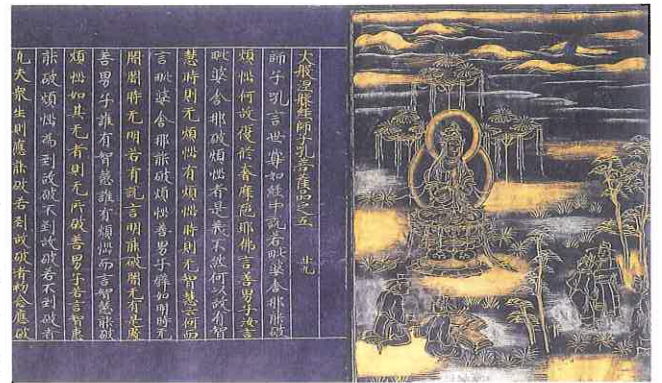 大般涅槃經師子吼菩薩品之五 廿九
師子吼言世尊如經中說若毗婆舍那能破
煩惱何故復於奢摩陁耶佛言善男子汝言
毗婆舍那破煩惱者是義不然何以故有智
慧時則无煩惱有煩惱時則无智慧云何而
言毗婆舍那能破煩惱善男子譬如明時无
闇闇時无明若有說言明能破闇无有是處
善男子誰有智慧誰有煩惱而言智慧能破
煩惱如其无者則无所破善男子若言智慧
能破煩惱為到故破不到故破若不到破者
凡夫衆生則應能破若到故破者初念應破